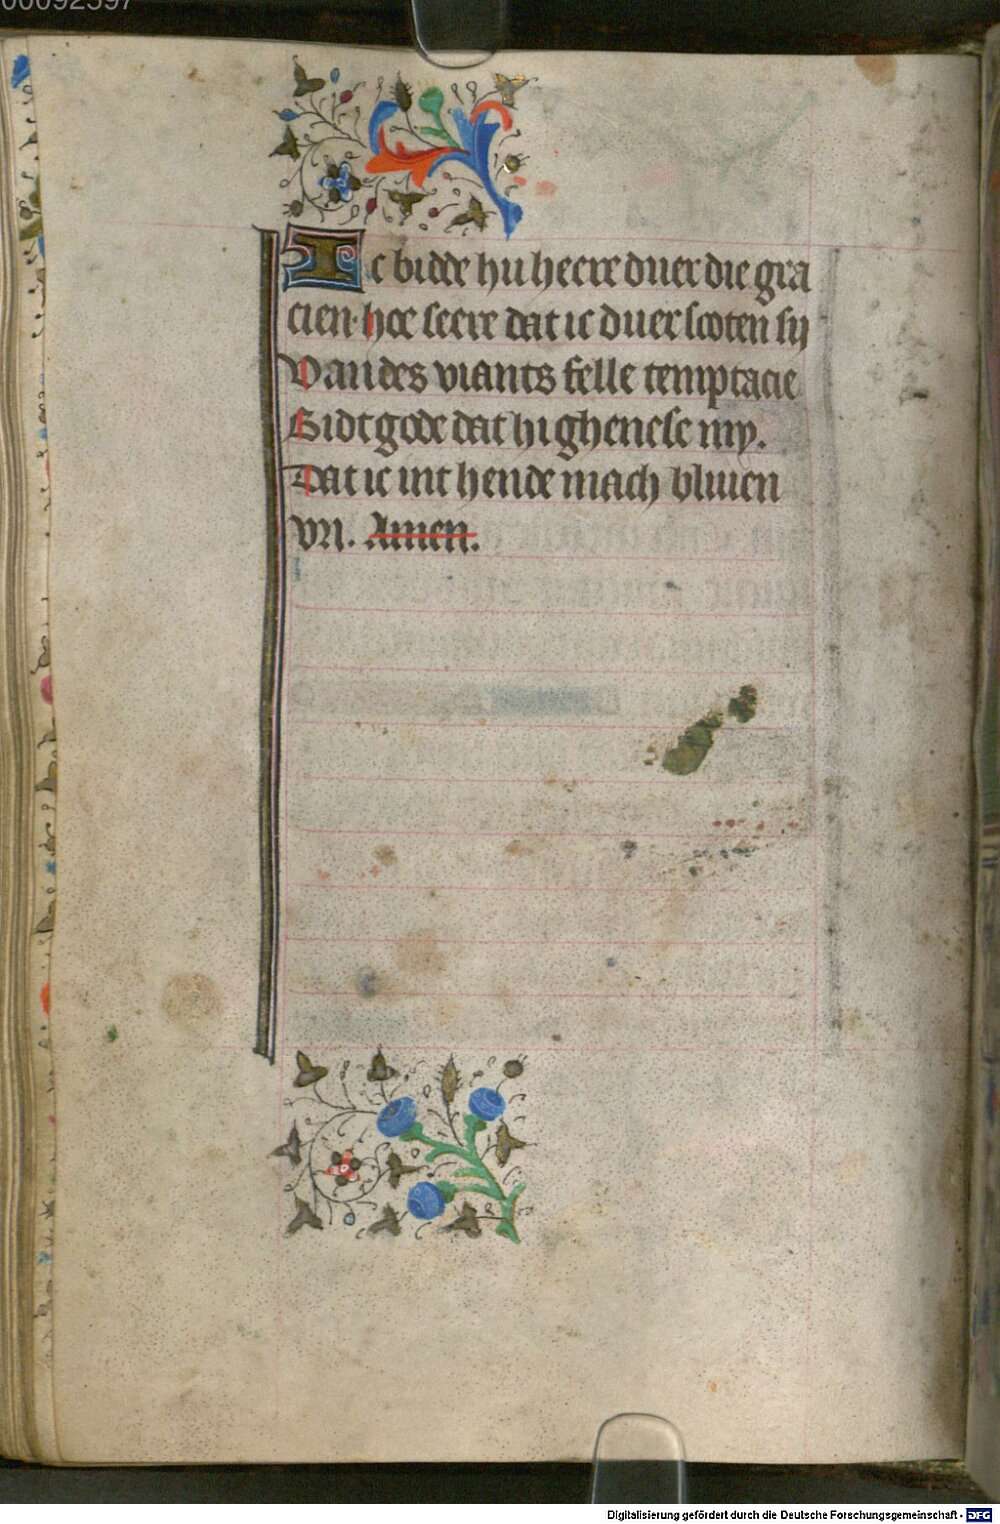 Ic bidde hu heere duer die gra
cien· hoe seere dat ic duerscoten sy
Van des viants felle temptacie
Bidt gode dat hi ghenese my.
Dat ic int hende mach bliuen
vri. Amen.
Digitalisierung gefördert durch die Deutsche Forschungsgemeinschaft - DFG